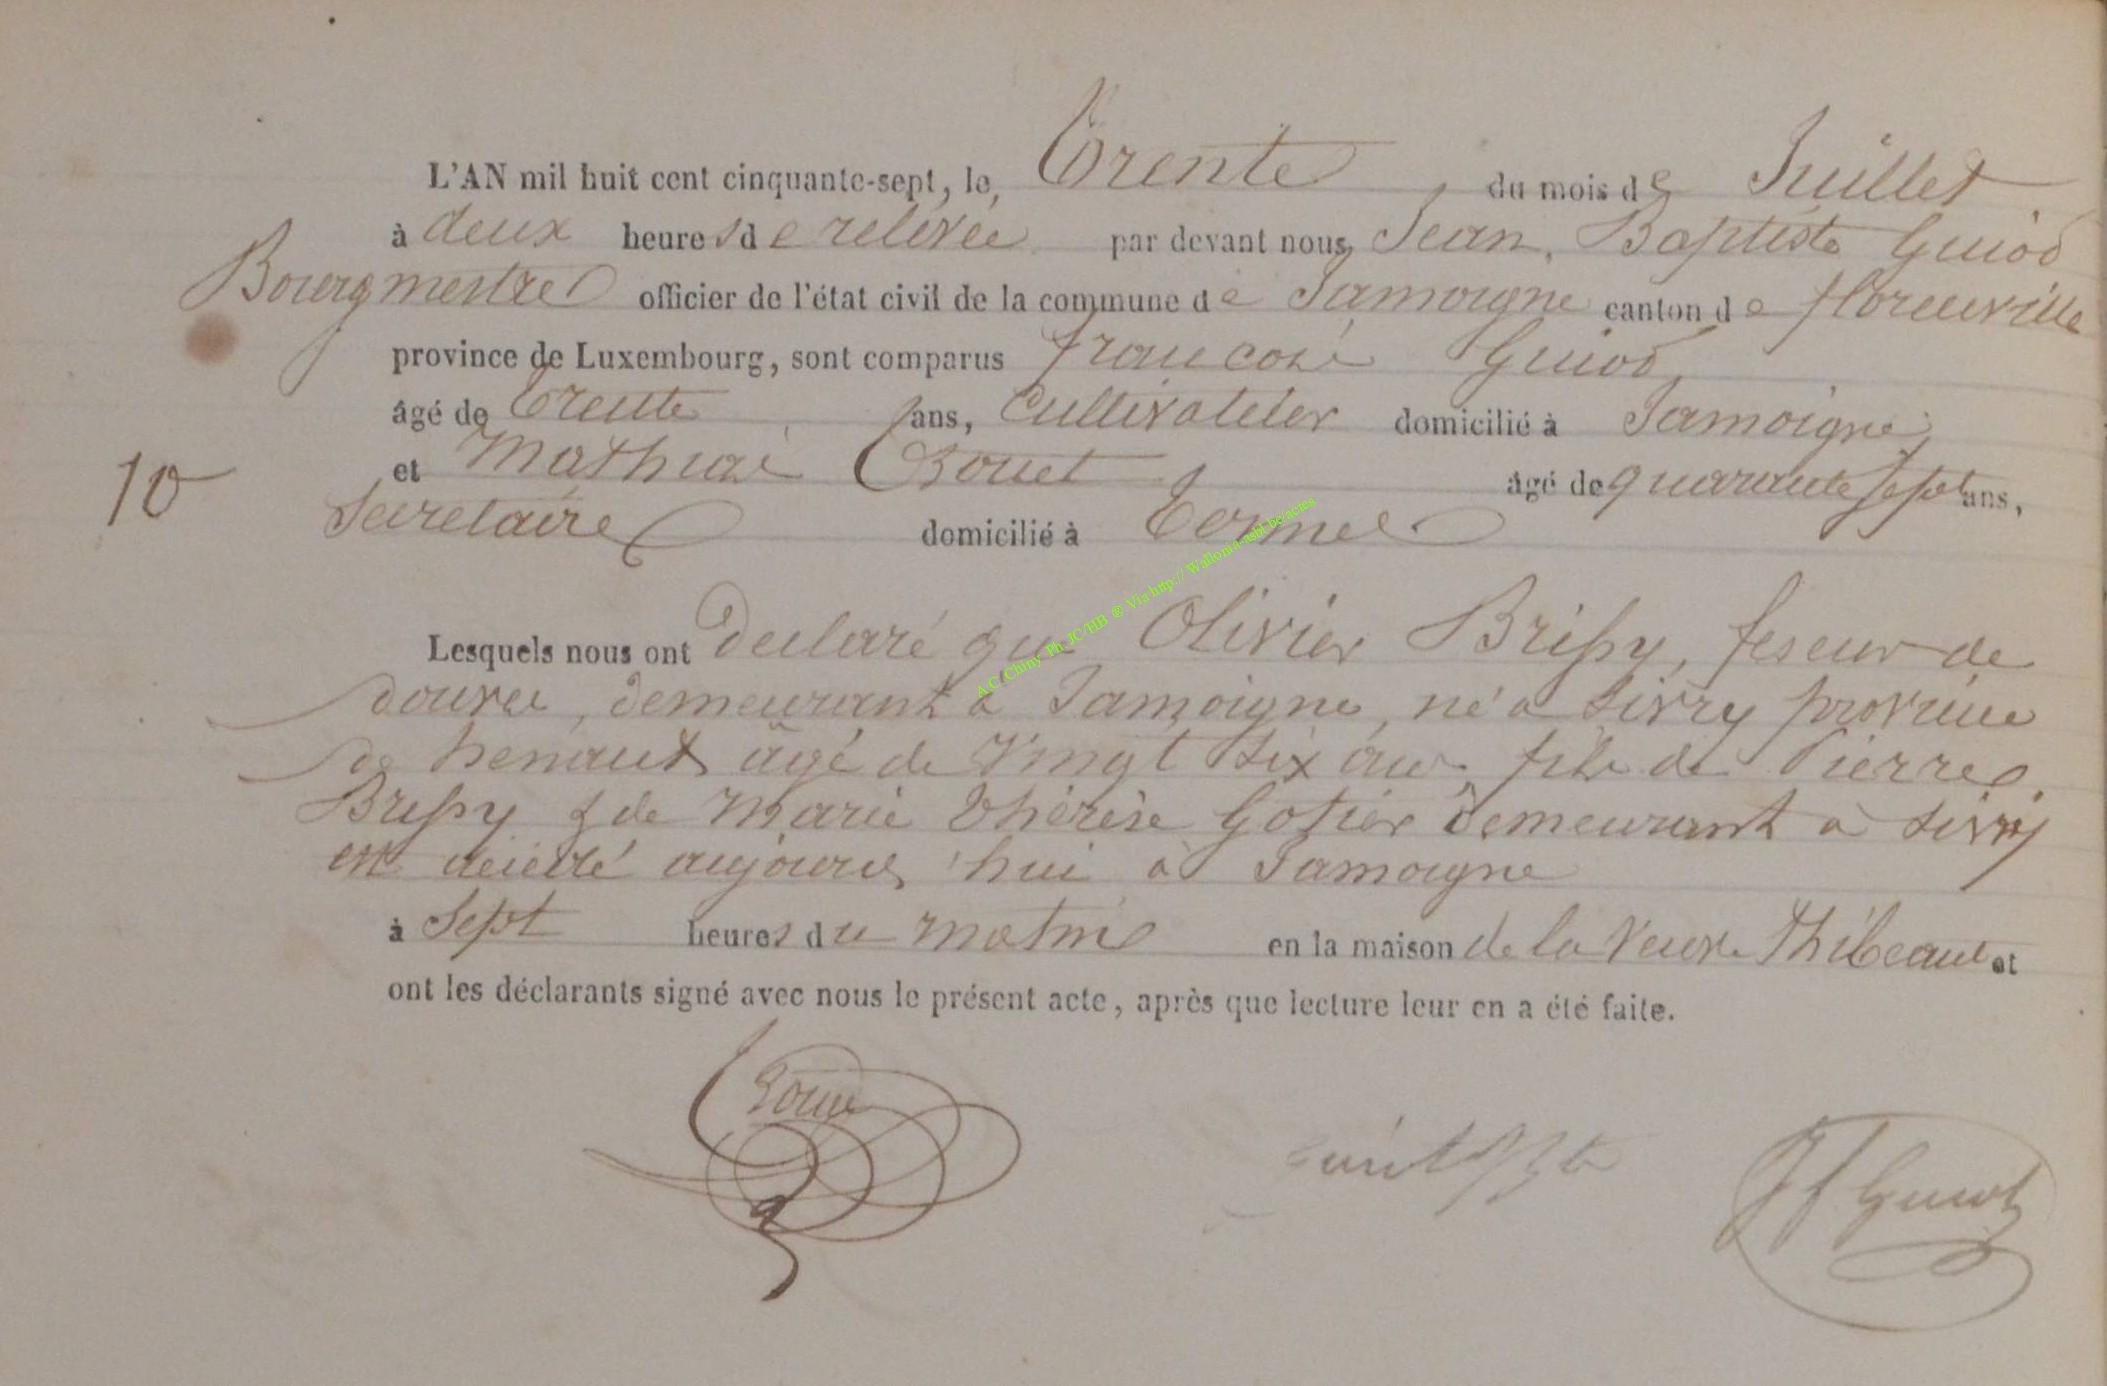 L'AN mil huit cent cinquante-sept, le, Trente du mois de Juillet
à deux heures de relevée par devant nous, Jean, Baptiste Guiot
Bourgmestre officier de l'état civil de la commune de Jamoigne canton de florenville
province de Luxembourg, sont comparus francois Guiot,
âgé de trente ans, Cultivateur domicilié à Jamoigne,
10
et Mathias Bouet âgé de quarante sept ans,
Secretaire domicilié à Termes
Lesquels nous ont declaré que Olivier Brissy, feseur de
douves, demeurant à Jamoigne, né à Sivry province
de henaut âgé de Vingt six ans, fils de Pierre
Brissy & de Marie Thérèse Gosier demeurant à Sivry
est décédé aujourd'hui à Jamoigne
à Sept heures du matin en la maison de la Veuve Thibeaut et
ont les déclarants signé avec nous le présent acte, après que lecture leur en a été faite.
JfGuiot
A.C. Chiny Ph. JC/HB ® Via http://Wallonia-asbl.be/actes